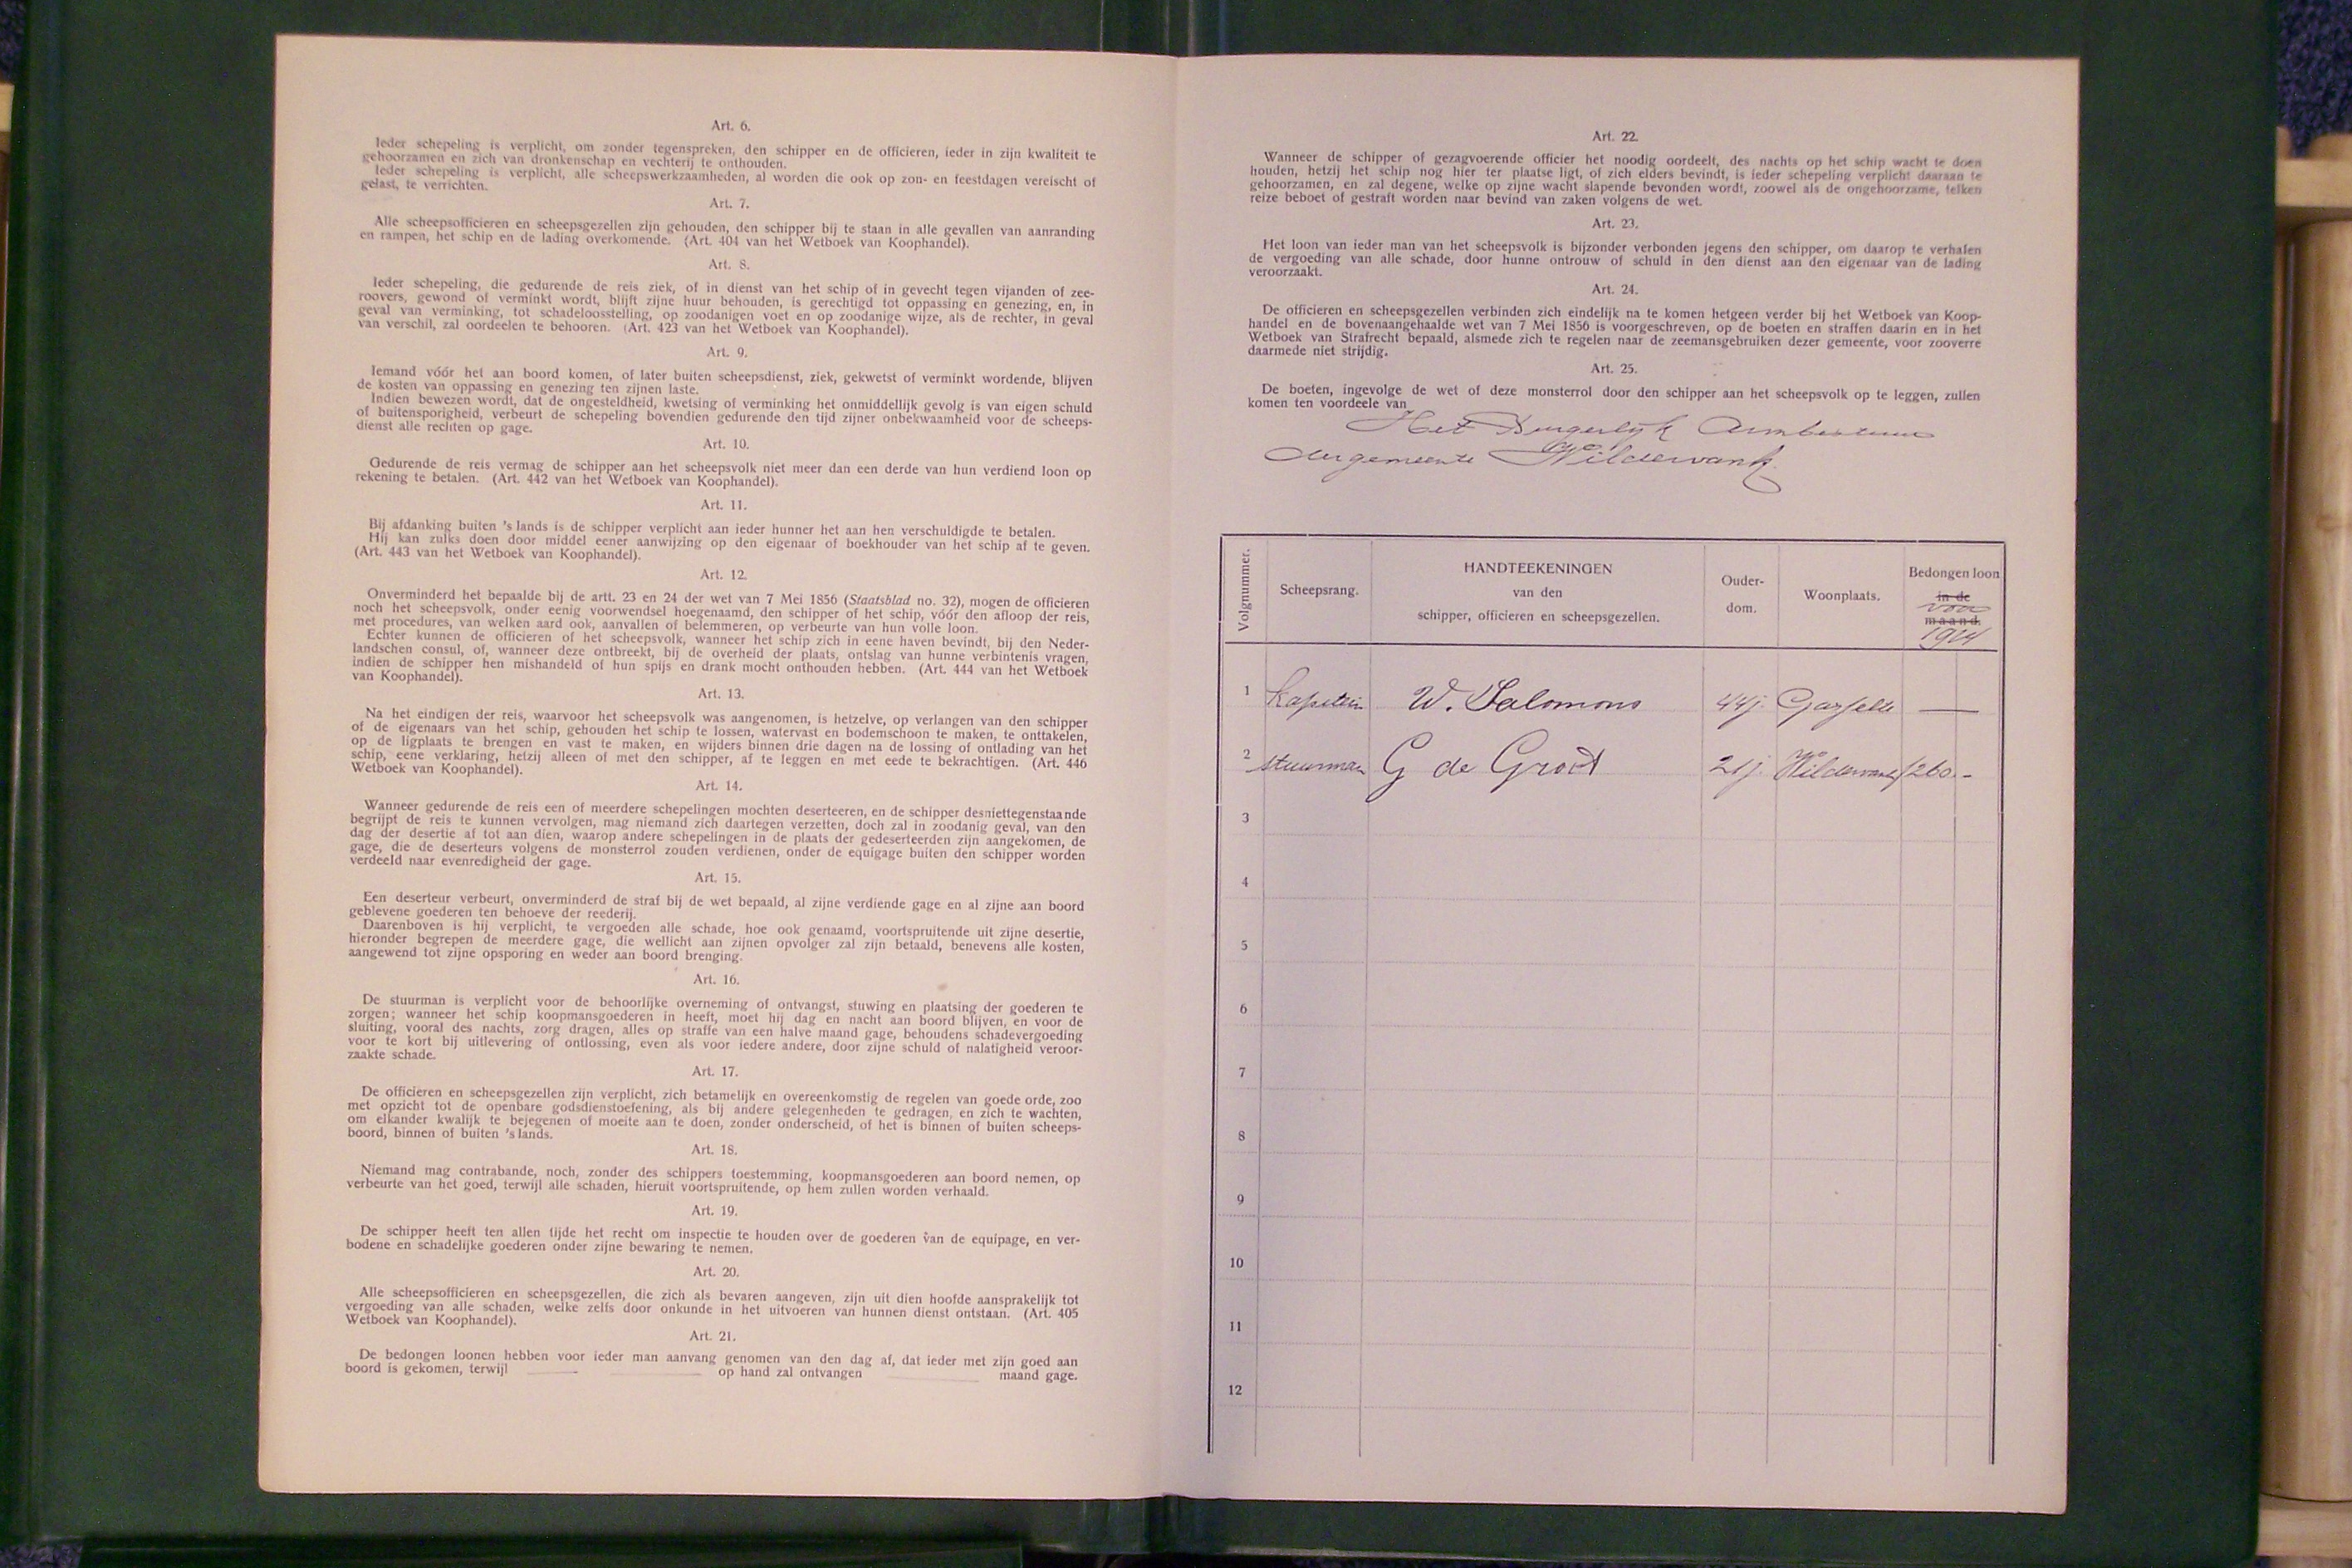 Art. 6.
Ieder schepeling is verplicht, om zonder tegenspreken, den schipper en de officieren, ieder in zijn kwaliteit te
gehoorzamen en zich van dronkenschap en vechterij te onthouden.
Ieder schepeling is verplicht, alle scheepswerkzaamheden, al worden die ook op zon- en feestdagen vereischt of
gelast, te verrichten.
Art. 7.
Alle scheepsofficieren en scheepsgezellen zijn gehouden, den schipper bij te staan in alle gevallen van aanranding
en rampen, het schip en de lading overkomende. (Art. 404 van het Wetboek van Koophandel).
Art. 8.
Ieder schepeling, die gedurende de reis ziek, of in dienst van het schip of in gevecht tegen vijanden of zee-
roovers, gewond of verminkt wordt, blijft zijne huur behouden, is gerechtigd tot oppassing en genezing, en, in
geval van verminking, tot schadeloosstelling, op zoodanigen voet en op zoodanige wijze, als de rechter, in geval
van verschil, zal oordeelen te behooren. (Art. 423 van het Wetboek van Koophandel).
Art. 9.
Iemand vóór het aan boord komen, of later buiten scheepsdienst, ziek, gekwetst of verminkt wordende, blijven
de kosten van oppassing en genezing ten zijnen laste.
Indien bewezen wordt, dat de ongesteldheid, kwetsing of verminking het onmiddellijk gevolg is van eigen schuld
of buitensporigheid, verbeurt de schepeling bovendien gedurende den tijd zijner onbekwaamheid voor de scheeps-
dienst alle rechten op gage.
Art. 10.
Gedurende de reis vermag de schipper aan het scheepsvolk niet meer dan een derde van hun verdiend loon op
rekening te betalen. (Art. 442 van het Wetboek van Koophandel).
Art. 11.
Bij afdanking buiten 's lands is de schipper verplicht aan ieder hunner het aan hen verschuldigde te betalen.
Hij kan zulks doen door middel eener aanwijzing op den eigenaar of boekhouder van het schip af te geven.
(Art. 443 van het Wetboek van Koophandel).
Art. 12.
Onverminderd het bepaalde bij de artt. 23 en 24 der wet van 7 Mei 1856 (Staatsblad no. 32), mogen de officieren
noch het scheepsvolk, onder eenig voorwendsel hoegenaamd, den schipper of het schip, vóór den afloop der reis,
met procedures, van welken aard ook, aanvallen of belemmeren, op verbeurte van hun volle loon.
Echter kunnen de officieren of het scheepsvolk, wanneer het schip zich in eene haven bevindt, bij den Neder-
landschen consul, of, wanneer deze ontbreekt, bij de overheid der plaats, ontslag van hunne verbintenis vragen,
indien de schipper hen mishandeld of hun spijs en drank mocht onthouden hebben. (Art. 444 van het Wetboek
van Koophandel).
Art. 13.
Na het eindigen der reis, waarvoor het scheepsvolk was aangenomen, is hetzelve, op verlangen van den schipper
of de eigenaars van het schip, gehouden het schip te lossen, watervast en bodemschoon te maken, te onttakelen,
op de ligplaats te brengen en vast te maken, en wijders binnen drie dagen na de lossing of ontlading van het
schip, eene verklaring, hetzij alleen of met den schipper, af te leggen en met eede te bekrachtigen. (Art. 446
Wetboek van Koophandel).
Art. 14.
Wanneer gedurende de reis een of meerdere schepelingen mochten deserteeren, en de schipper desniettegenstaande
begrijpt de reis te kunnen vervolgen, mag niemand zich daartegen verzetten, doch zal in zoodanig geval, van den
dag der desertie af tot aan dien, waarop andere schepelingen in de plaats der gedeserteerden zijn aangekomen, de
gage, die de deserteurs volgens de monsterrol zouden verdienen, onder de equigage buiten den schipper worden
verdeeld naar evenredigheid der gage.
Art. 15.
Een deserteur verbeurt, onverminderd de straf bij de wet bepaald, al zijne verdiende gage en al zijne aan boord
geblevene goederen ten behoeve der reederij.
Daarenboven is hij verplicht, te vergoeden alle schade, hoe ook genaamd, voortspruitende uit zijne desertie,
hieronder begrepen de meerdere gage, die wellicht aan zijnen opvolger zal zijn betaald, benevens alle kosten,
aangewend tot zijne opsporing en weder aan boord brenging.
Art. 16.
De stuurman is verplicht voor de behoorlijke overneming of ontvangst, stuwing en plaatsing der goederen te
zorgen; wanneer het schip koopmansgoederen in heeft, moet hij dag en nacht aan boord blijven, en voor de
sluiting, vooral des nachts, zorg dragen, alles op straffe van een halve maand gage, behoudens schadevergoeding
voor te kort bij uitlevering of ontlossing, even als voor iedere andere, door zijne schuld of nalatigheid veroor-
zaakte schade.
Art. 17.
De officieren en scheepsgezellen zijn verplicht, zich betamelijk en overeenkomstig de regelen van goede orde, zoo
met opzicht tot de openbare godsdienstoefening, als bij andere gelegenheden te gedragen, en zich te wachten,
om elkander kwalijk te bejegenen of moeite aan te doen, zonder onderscheid, of het is binnen of buiten scheeps-
boord, binnen of buiten 's lands.
Art. 18.
Niemand mag contrabande, noch, zonder des schippers toestemming, koopmansgoederen aan boord nemen, op
verbeurte van het goed, terwijl alle schaden, hieruit voortspruitende, op hem zullen worden verhaald.
Art. 19.
De schipper heeft ten allen tijde het recht om inspectie te houden over de goederen van de equipage, en ver-
bodene en schadelijke goederen onder zijne bewaring te nemen.
Art. 20.
Alle scheepsofficieren en scheepsgezellen, die zich als bevaren aangeven, zijn uit dien hoofde aansprakelijk tot
vergoeding van alle schaden, welke zelfs door onkunde in het uitvoeren van hunnen dienst ontstaan. (Art. 405
Wetboek van Koophandel).
Art. 21.
De bedongen loonen hebben voor ieder man aanvang genomen van den dag af, dat ieder met zijn goed aan
boord is gekomen, terwijl op hand zal ontvangen maand gage.
Art. 22.
Wanneer de schipper of gezagvoerende officier het noodig oordeelt, des nachts op het schip wacht te doen
houden, hetzij het schip nog hier ter plaatse ligt, of zich elders bevindt, is ieder schepeling verplicht daaraan te
gehoorzamen, en zal degene, welke op zijne wacht slapende bevonden wordt, zoowel als de ongehoorzame, telken
reize beboet of gestraft worden naar bevind van zaken volgens de wet.
Art. 23.
Het loon van ieder man van het scheepsvolk is bijzonder verbonden jegens den schipper, om daarop te verhalen
de vergoeding van alle schade, door hunne ontrouw of schuld in den dienst aan den eigenaar van de lading
veroorzaakt.
Art. 24.
De officieren en scheepsgezellen verbinden zich eindelijk na te komen hetgeen verder bij het Wetboek van Koop-
handel en de bovenaangehaalde wet van 7 Mei 1856 is voorgeschreven, op de boeten en straffen daarin en in het
Wetboek van Strafrecht bepaald, alsmede zich te regelen naar de zeemansgebruiken dezer gemeente, voor zooverre
daarmede niet strijdig.
Art. 25.
De boeten, ingevolge de wet of deze monsterrol door den schipper aan het scheepsvolk op te leggen, zullen
komen ten voordeele van
Het Burgerlijk Armbestuur
der gemeente Wildervank
Volgnummer.
Scheepsrang.
HANDTEEKENINGEN
van den
schipper, officieren en scheepsgezellen.
Ouder-
dom.
Woonplaats.
Bedongen loon
in de
voor
maand.
1914
1 Kapitein W. Salomons 44j. Gasselte —
2 stuurman G de Groot 21j. Wildervank f 260.-
3
4
5
6
7
8
9
10
11
12